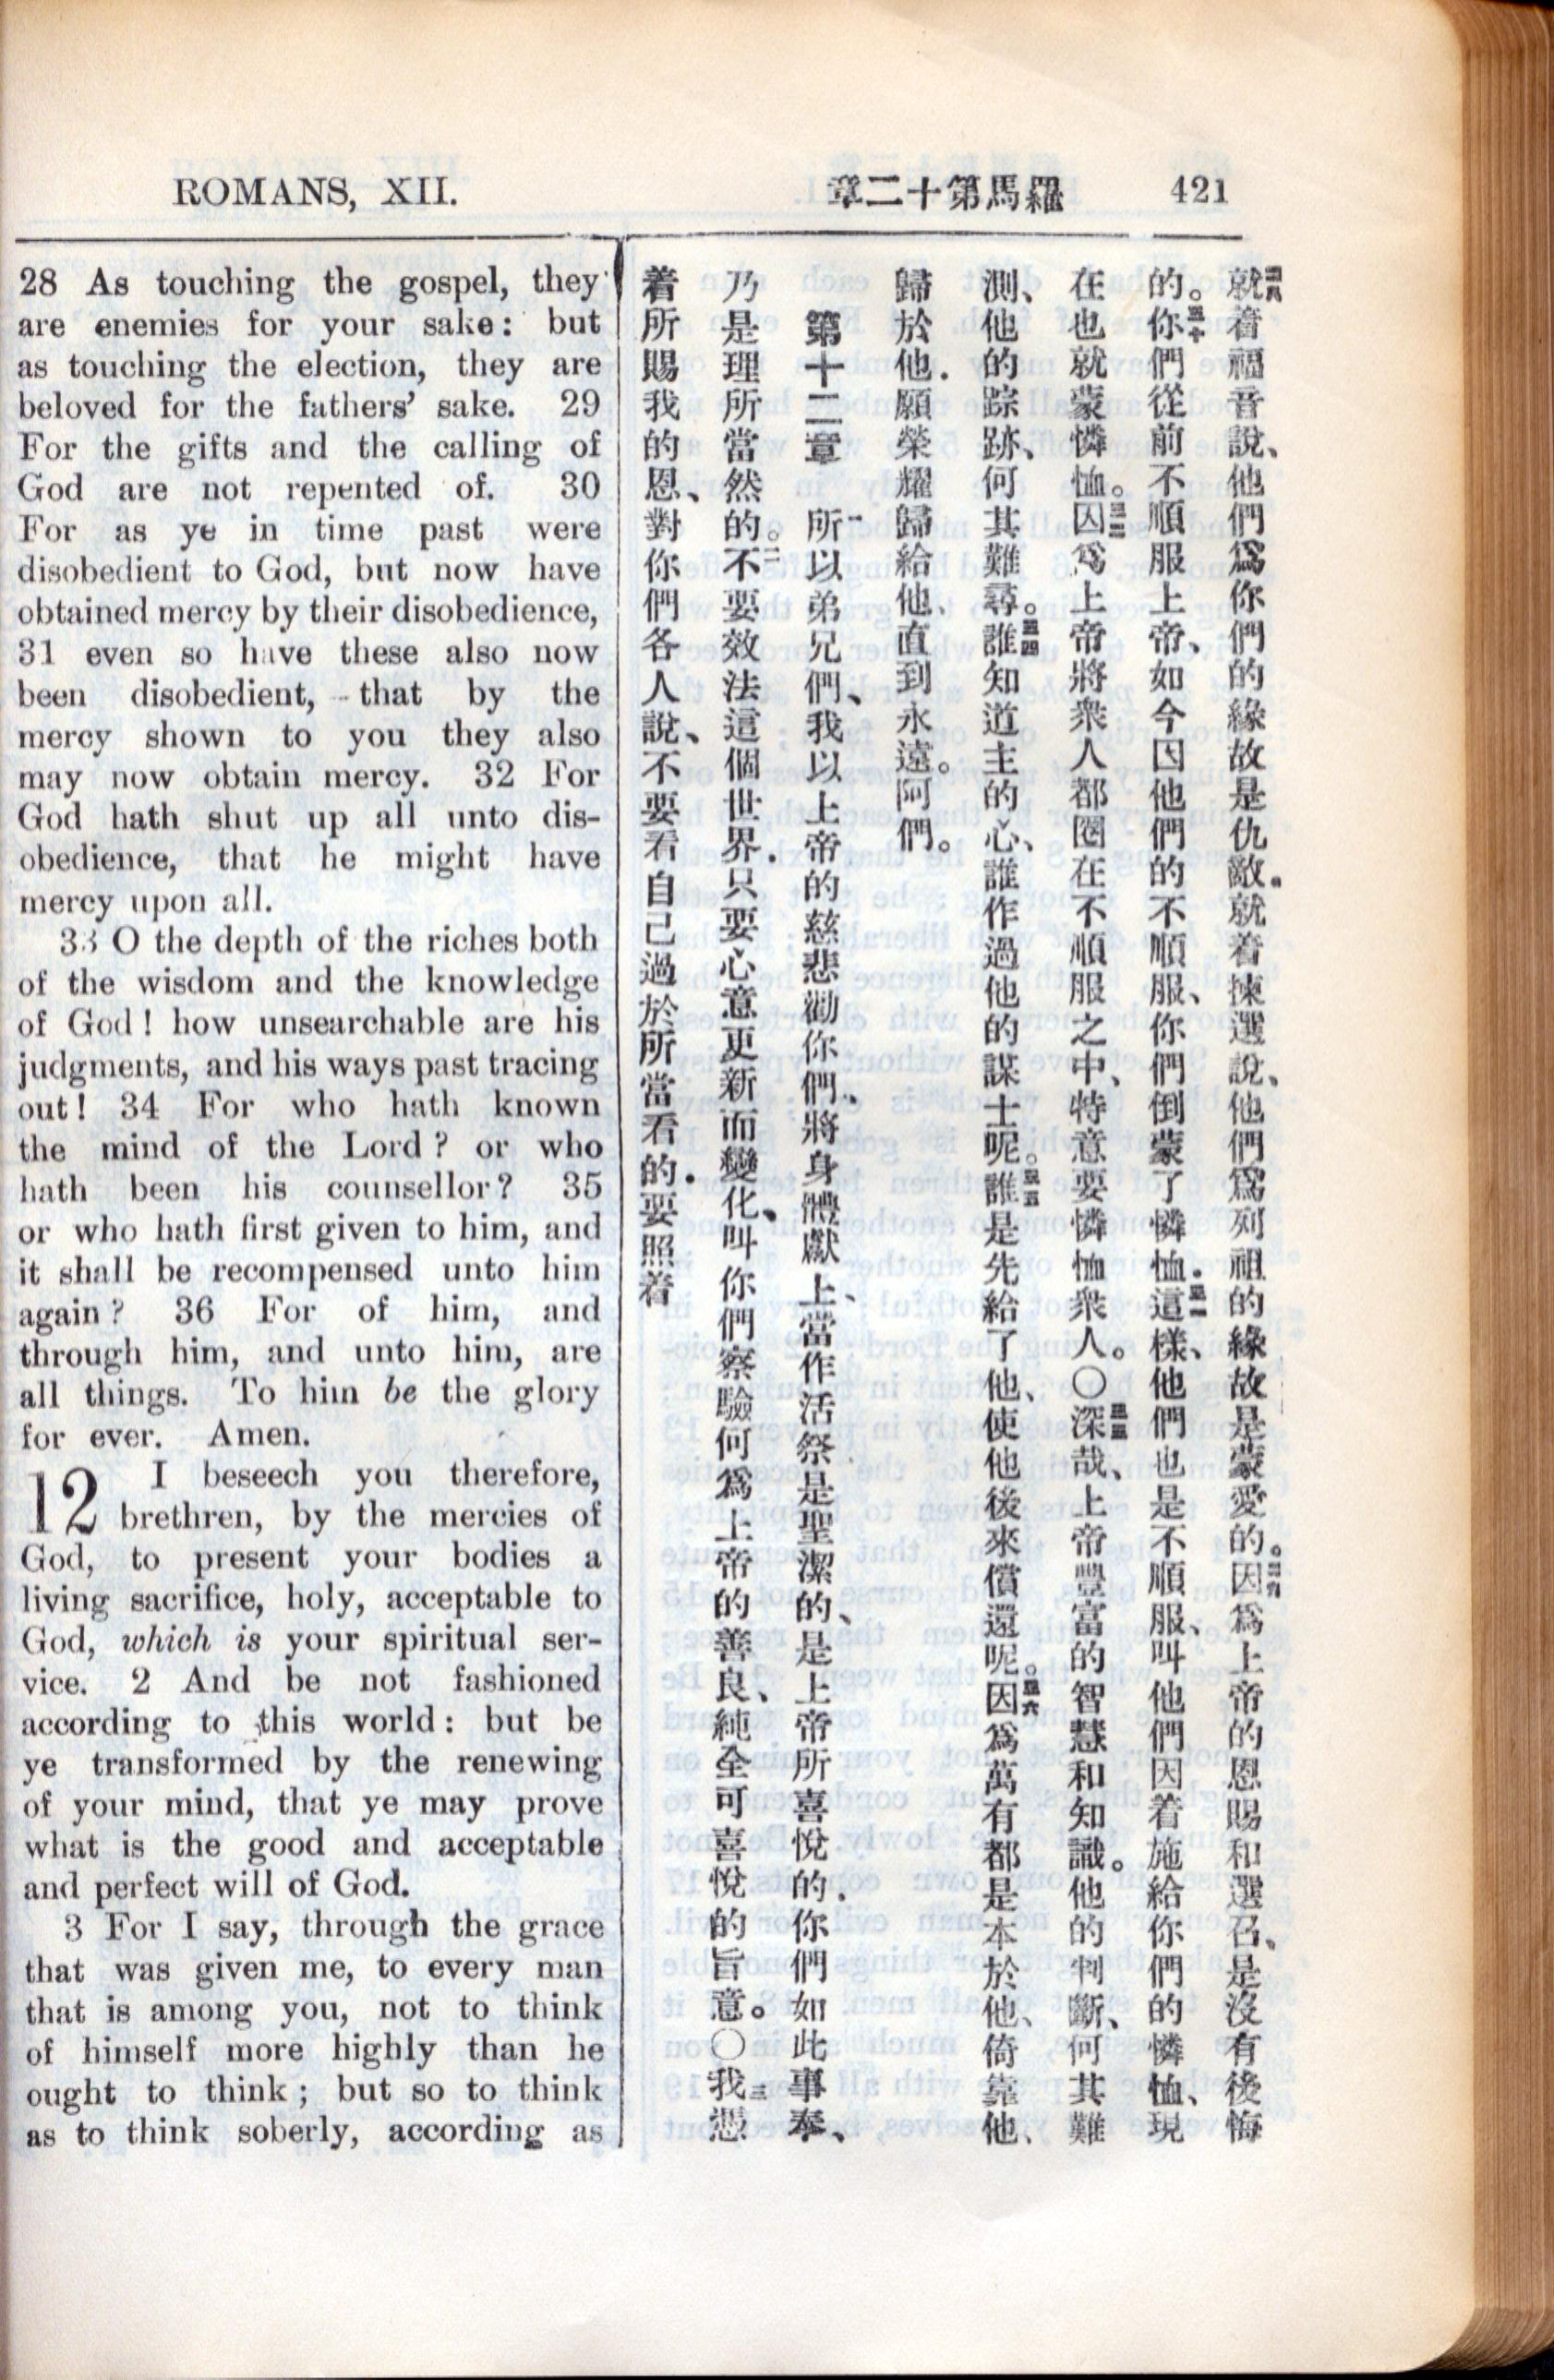 ROMANS, XII.
羅馬第十二章
421
28 As touching the gospel, they
are enemies for your sake: but
as touching the election, they are
beloved for the fathers' sake. 29
For the gifts and the calling of
God are not repented of. 30
For as ye in time past were
disobedient to God, but now have
obtained mercy by their disobedience,
31 even so have these also now
been disobedient, that by the
mercy shown to you they also
may now obtain mercy. 32 For
God hath shut up all unto dis-
obedience, that he might have
mercy upon all.
33 O the depth of the riches both
of the wisdom and the knowledge
of God! how unsearchable are his
judgments, and his ways past tracing
out! 34 For who hath known
the mind of the Lord? or who
hath been his counsellor? 35
or who hath first given to him, and
it shall be recompensed unto him
again? 36 For of him, and
through him, and unto him, are
all things. To him be the glory
for ever. Amen.
12 I beseech you therefore,
brethren, by the mercies of
God, to present your bodies a
living sacrifice, holy, acceptable to
God, which is your spiritual ser-
vice. 2 And be not fashioned
according to this world: but be
ye transformed by the renewing
of your mind, that ye may prove
what is the good and acceptable
and perfect will of God.
3 For I say, through the grace
that was given me, to every man
that is among you, not to think
of himself more highly than he
ought to think; but so to think
as to think soberly, according as
二八就着福音說、他們爲你們的緣故是仇敵．就着揀選說、他們爲列祖的緣故是蒙愛的。二九因爲上帝的恩賜和選召、是沒有後悔
的。三十你們從前不順服上帝、如今因他們的不順服、你們倒蒙了憐恤．三一這樣、他們也是不順服、叫他們因着施給你們的憐恤、現
在也就蒙憐恤。三二因爲上帝將衆人都圈在不順服之中、特意要憐恤衆人。〇三三深哉、上帝豐富的智慧和知識。他的判斷、何其難
測、他的踪跡、何其難尋。三四誰知道主的心、誰作過他的謀士呢。三五誰是先給了他、使他後來償還呢。三六因爲萬有都是本於他、倚靠他、
歸於他．願榮耀歸給他、直到永遠。阿們。
第十二章 一所以弟兄們、我以上帝的慈悲勸你們、將身體獻上、當作活祭是聖潔的、是上帝所喜悅的．你們如此事奉、
乃是理所當然的。二不要效法這個世界．只要心意更新而變化、叫你們察驗何爲上帝的善良、純全可喜悅的旨意。〇三我憑
着所賜我的恩、對你們各人說、不要看自己過於所當看的．要照着